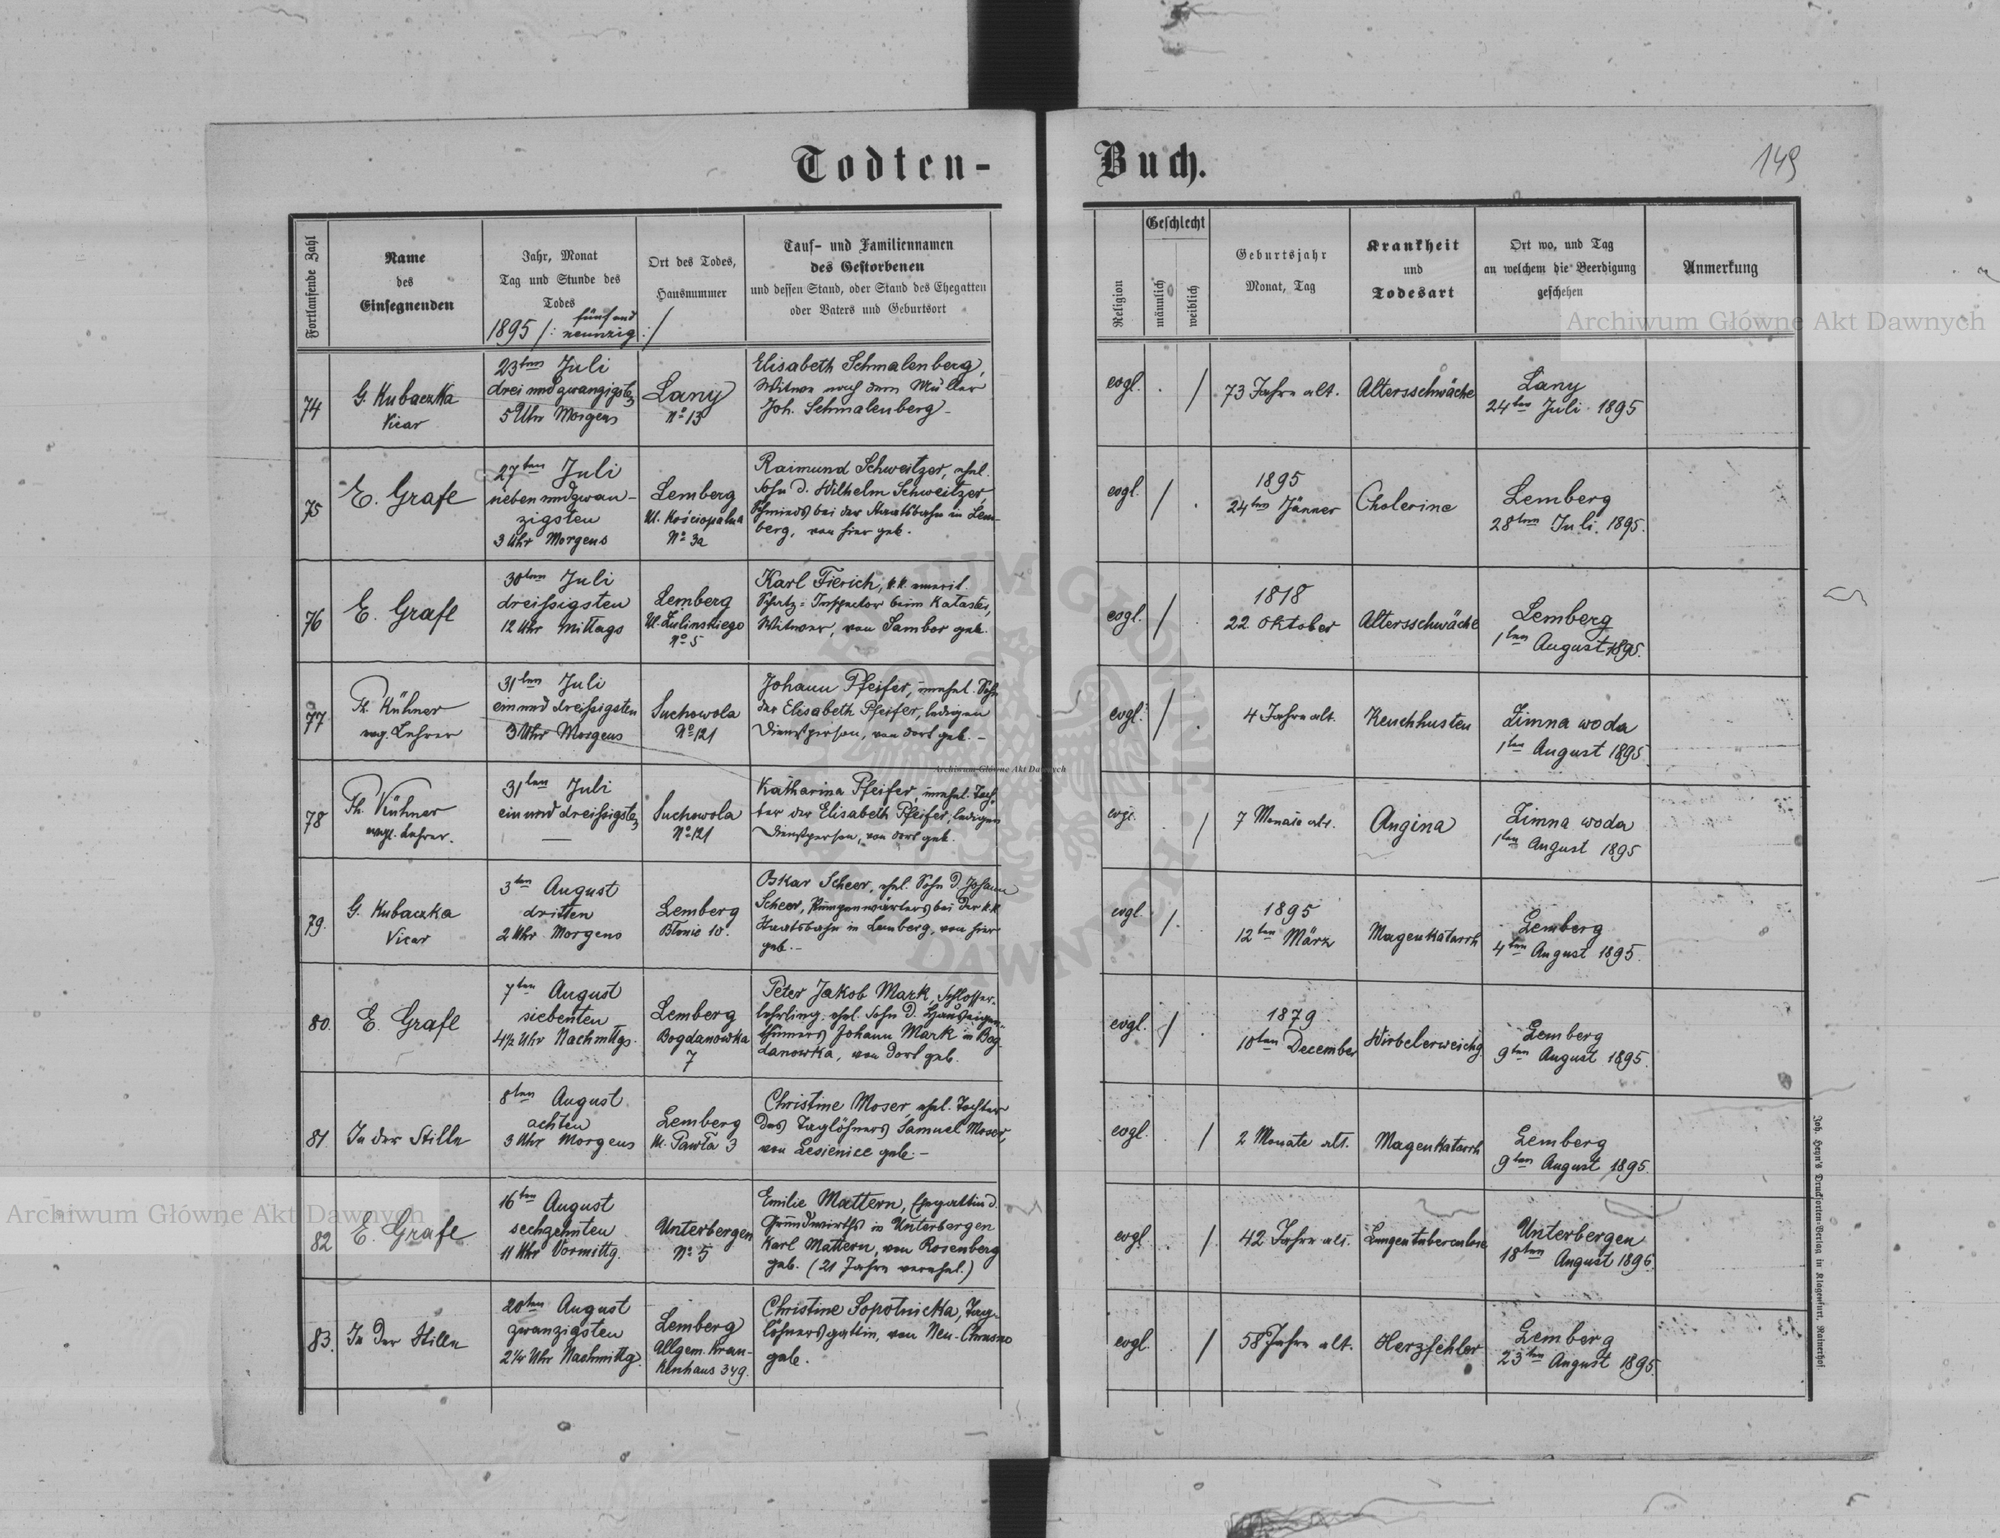 Todten-Buch.
149
Fortlaufende Zahl
Name
des
Einsegnenden
Jahr, Monat
Tag und Stunde des
Todes
1895 /: fünf und
neunzig :/
Ort des Todes,
Hausnummer
Tauf- und Familiennamen
des Gestorbenen
und dessen Stand, oder Stand des Ehegatten
oder Vaters und Geburtsort
Religion
Geschlecht
männlich
weiblich
Geburtsjahr
Monat, Tag
Krankheit
und
Todesart
Ort wo, und Tag
an welchem die Beerdigung
geschehen
Anmerkung
74
G. Kubaczka
Vicar
23ten Juli
drei und zwanzigsten
5 Uhr Morgens
Lany
No 13
Elisabeth Schmalenberg,
Witwe nach dem Müller
Joh. Schmalenberg -
evgl.
/
73 Jahre alt.
Altersschwäche
Lany
24ten Juli 1895
75
E. Grafe
27ten Juli
sieben und zwan-
zigsten
3 Uhr Morgens
Lemberg
Ul. Kościopalna
No 3a
Raimund Schweitzer, ehel.
Sohn d. Wilhelm Schweitzer,
Schmieds bei der Staatsbahn in Lem-
berg, von hier geb.
evgl.
/
1895
24ten Jänner
Cholerine
Lemberg
28ten Juli. 1895.
76
E. Grafe
30ten Juli
dreissigsten
12 Uhr Mittags
Lemberg
Ul. Zulinskiego
No 5
Karl Fierich, k.k. emerit.
Schätz-Inspector beim Kataster,
Witwer, von Sambor geb.
evgl.
/
1818
22. Oktober
Altersschwäche
Lemberg
1ten August 1895.
77
Th. Kühner
evg. Lehrer
31ten Juli
ein und dreissigsten
3 Uhr Morgens
Suchowola
No 121
Johann Pfeifer, unehel. Sohn
der Elisabeth Pfeifer, ledigen
Dienstperson, von dort geb. -
evgl.
/
4 Jahre alt.
Keuchhusten
Zimna woda
1ten August 1895
78
Th. Kühner
evgl. Lehrer.
31ten Juli
ein und dreissigsten
—
Suchowola
No 121
Katharina Pfeifer, unehel. Toch-
ter der Elisabeth Pfeifer, ledigen
Dienstperson, von dort geb.
evgl.
/
7 Monate alt.
Angina
Zimna woda
1ten August 1895
79.
G. Kubaczka
Vicar
3ten August
dritten
2 Uhr Morgens
Lemberg
Błonie 10.
Oskar Scheer, ehel. Sohn d. Johann
Scheer, Pumpenwärters bei der k.k.
Staatsbahn in Lemberg, von hier
geb. -
evgl.
/
1895
12ten März
Magenkatarrh
Lemberg
4ten August 1895.
80.
E. Grafe
7ten August
siebenten
4½ Uhr Nachmttgs.
Lemberg
Bogdanowka
7
Peter Jakob Mark, Schlosser-
lehrling, ehel. Sohn d. Hauseigen-
thümers Johann Mark in Bog-
danowka, von dort geb.
evgl.
/
1879
10ten December
Wirbelerweichg
Lemberg
9ten August 1895.
81.
In der Stille
8ten August
achten
3 Uhr Morgens
Lemberg
Ul. Pawła 3
Christine Moser, ehel. Tochter
des Taglöhners Samuel Moser,
von Lesienice geb. -
evgl.
/
2 Monate alt.
Magenkatarrh
Lemberg
9ten August 1895.
82
E. Grafe
16ten August
sechzehnten
11 Uhr Vormittg.
Unterbergen
No 5
Emilie Mattern, Ehegattin d.
Grundwirths in Unterbergen
Karl Mattern, von Rosenberg
geb. (21 Jahre verehel.)
evgl.
/
42 Jahre alt.
Lungentuberculose
Unterbergen
18ten August 1895.
83.
In der Stille
20ten August
zwanzigsten
2¼ Uhr Nachmittg.
Lemberg
Allgem. Kran-
kenhaus 349.
Christine Sopotnicka, Tag-
löhnersgattin, von Neu-Chrusno
geb.
evgl.
/
58 Jahre alt.
Herzfehler
Lemberg
23ten August 1895.
Joh. Heyn's Drucksorten-Verlag in Klagenfurt, Rainerhof
Archiwum Główne Akt Dawnych
Archiwum Główne Akt Dawnych
Archiwum Główne Akt Dawnych
ARCHIWUM GŁÓWNE AKT DAWNYCH